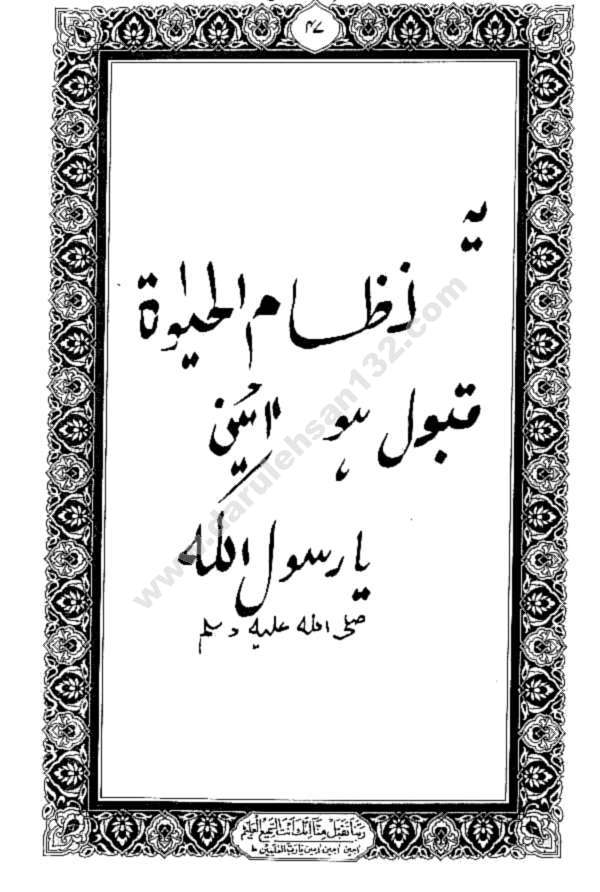 ۴۷
یہ
نظام الحیٰوۃ
قبول ہو آمین
یا رسول اللہ
صلی اللہ علیہ وسلم
www.darulehsan132.com
ربنا تقبل منا انک انت السمیع العلیم
امین امین امین یا رب العلمین ط